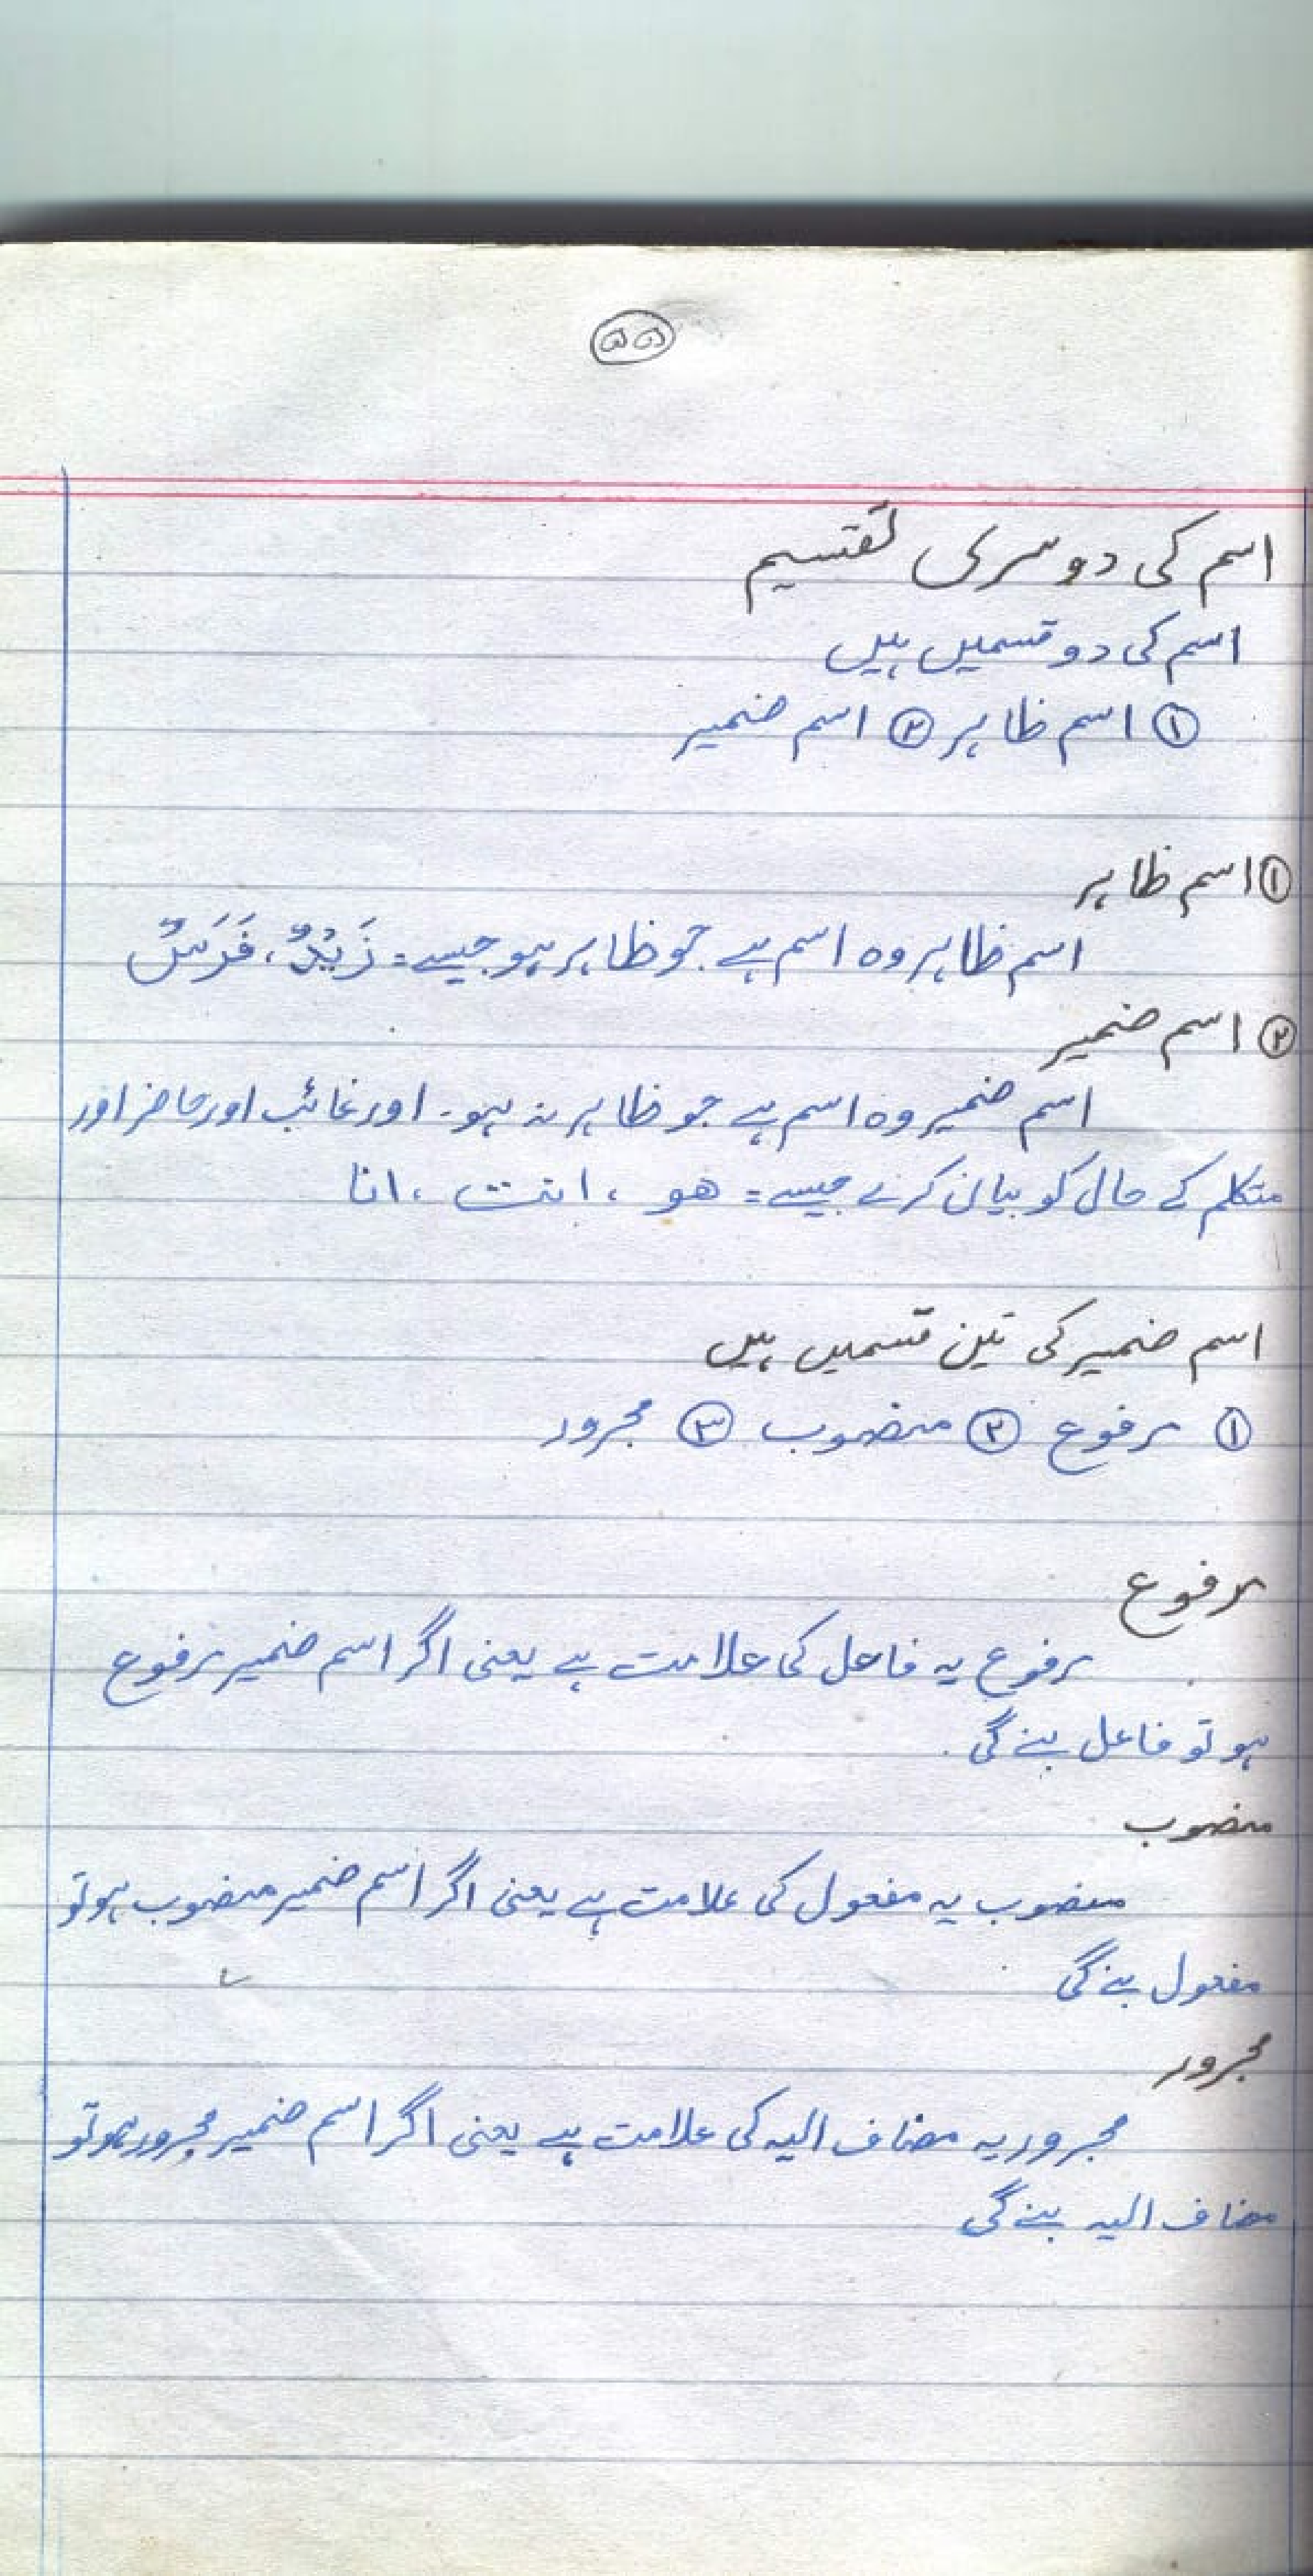 ۵۵
اسم کی دوسری تقسیم
اسم کی دو قسمیں ہیں
① اسم ظاہر ② اسم ضمیر
① اسم ظاہر
اسم ظاہر وہ اسم ہے جو ظاہر ہو جیسے = زَیْدٌ ، فَرَسٌ
② اسم ضمیر
اسم ضمیر وہ اسم ہے جو ظاہر نہ ہو ۔ اور غائب اور حاضر اور
متکلم کے حال کو بیان کرے جیسے = ھو ، انت ، انا
اسم ضمیر کی تین قسمیں ہیں
① مرفوع ② منصوب ③ مجرور
مرفوع
مرفوع یہ فاعل کی علامت ہے یعنی اگر اسم ضمیر مرفوع
ہو تو فاعل بنے گی ۔
منصوب
منصوب یہ مفعول کی علامت ہے یعنی اگر اسم ضمیر منصوب ہو تو
مفعول بنے گی
مجرور
مجرور یہ مضاف الیہ کی علامت ہے یعنی اگر اسم ضمیر مجرور ہو تو
مضاف الیہ بنے گی